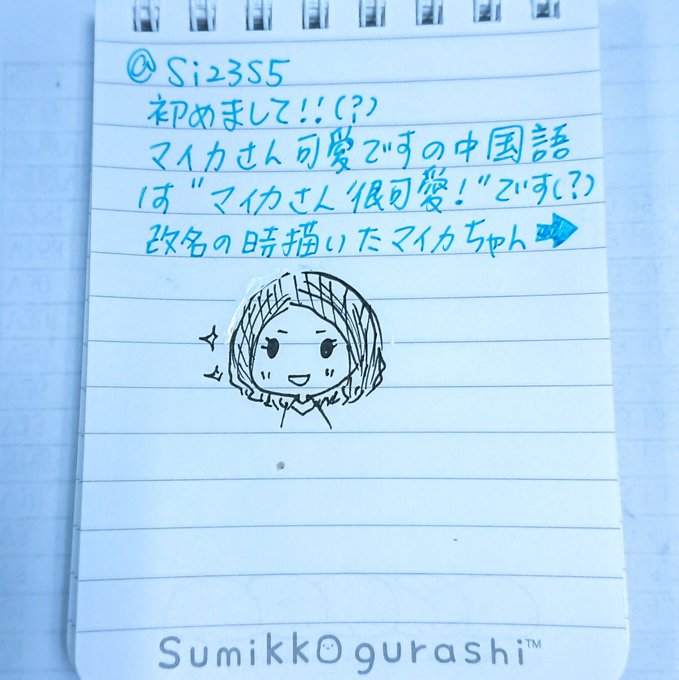 @Si23S5
初めまして!!(?)
マイカさん可愛ですの中国語
は"マイカさん很可愛!"です(?)
改名の時描いたマイカちゃん➡
Sumikkogurashi™